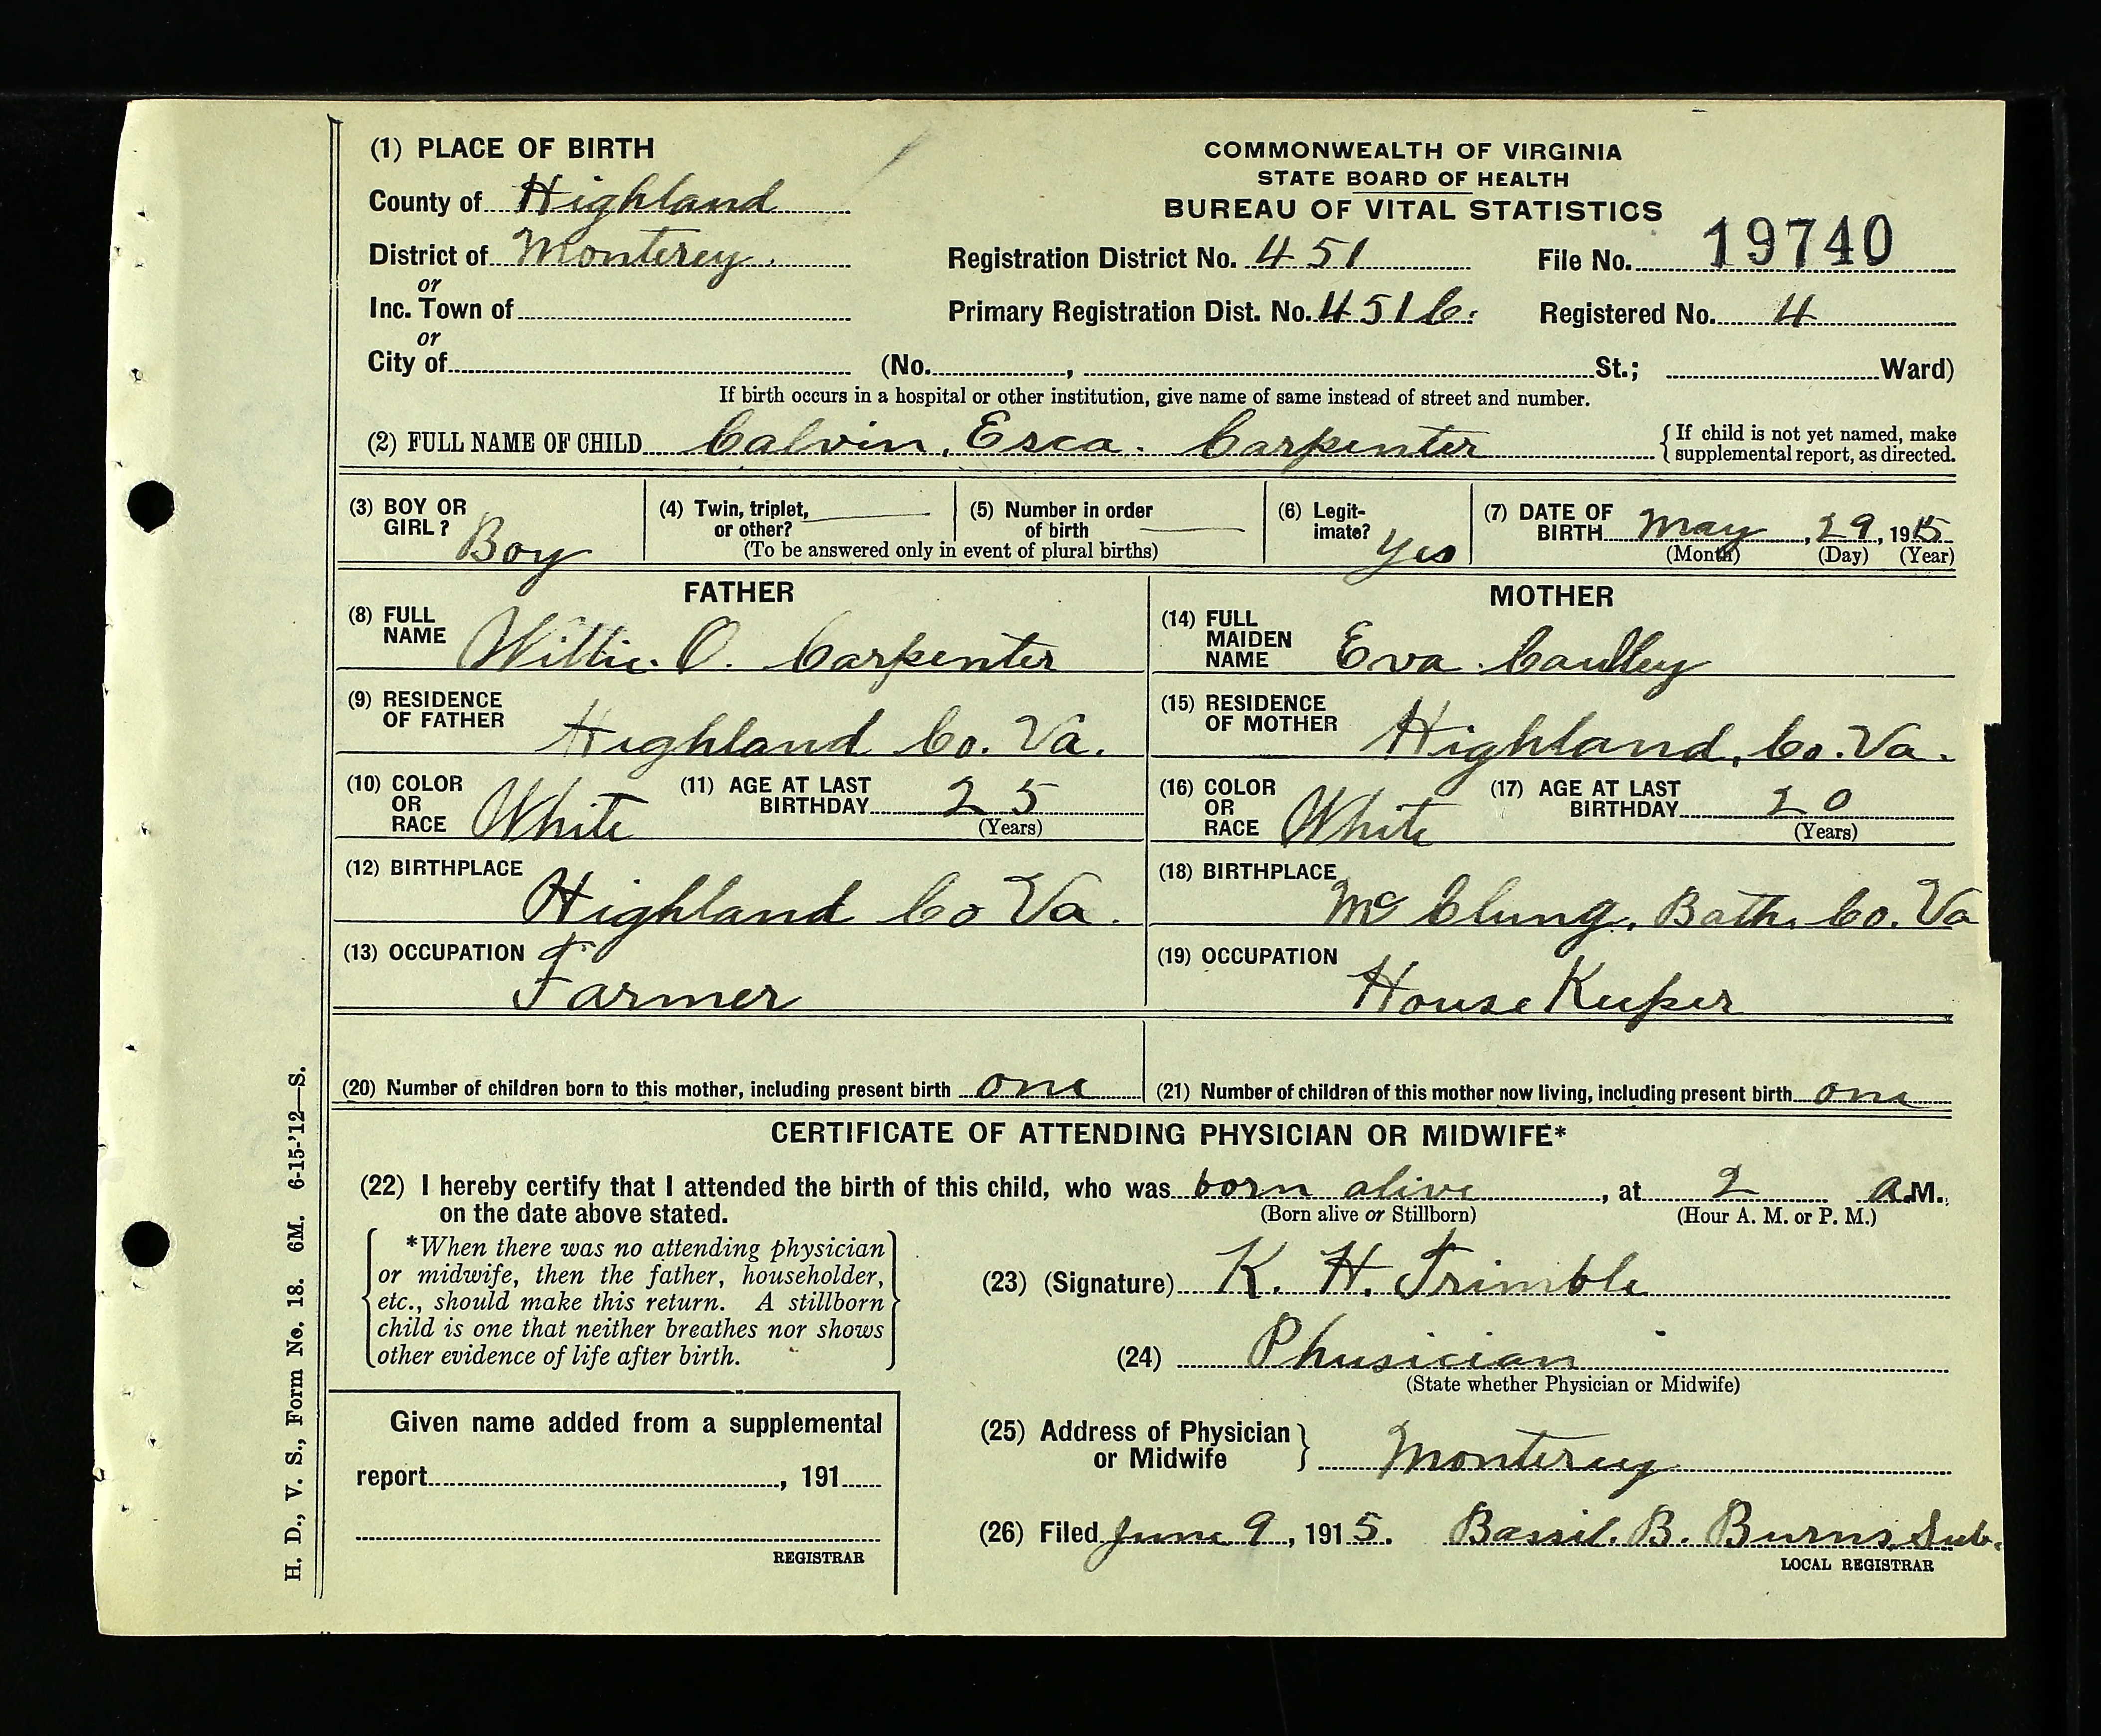 (1) PLACE OF BIRTH
COMMONWEALTH OF VIRGINIA
STATE BOARD OF HEALTH
BUREAU OF VITAL STATISTICS
County of Highland
District of Monterey.
Registration District No. 451
File No. 19740
or
Inc. Town of
Primary Registration Dist. No. 451b.
Registered No. 4
or
City of (No. , St.; Ward)
If birth occurs in a hospital or other institution, give name of same instead of street and number.
(2) FULL NAME OF CHILD Calvin. Esca. Carpenter
If child is not yet named, make
supplemental report, as directed.
(3) BOY OR
GIRL? Boy
(4) Twin, triplet,
or other?
(5) Number in order
of birth
(To be answered only in event of plural births)
(6) Legit-
imate? Yes
(7) DATE OF
BIRTH May, 29, 1915
(Month) (Day) (Year)
FATHER
(8) FULL
NAME Willie. O. Carpenter
(9) RESIDENCE
OF FATHER Highland Co. Va.
(10) COLOR
OR
RACE White
(11) AGE AT LAST
BIRTHDAY 25
(Years)
(12) BIRTHPLACE
Highland Co Va.
(13) OCCUPATION
Farmer
MOTHER
(14) FULL
MAIDEN
NAME Eva. Caulley
(15) RESIDENCE
OF MOTHER Highland, Co. Va.
(16) COLOR
OR
RACE White
(17) AGE AT LAST
BIRTHDAY 20
(Years)
(18) BIRTHPLACE
Mc Clung, Bath. Co. Va
(19) OCCUPATION
House Keeper
(20) Number of children born to this mother, including present birth one
(21) Number of children of this mother now living, including present birth one
CERTIFICATE OF ATTENDING PHYSICIAN OR MIDWIFE*
(22) I hereby certify that I attended the birth of this child, who was born alive, at 2 a.M.,
on the date above stated. (Born alive or Stillborn) (Hour A. M. or P. M.)
*When there was no attending physician
or midwife, then the father, householder,
etc., should make this return. A stillborn
child is one that neither breathes nor shows
other evidence of life after birth.
(23) (Signature) K. H. Trimble
(24) Phusician
(State whether Physician or Midwife)
Given name added from a supplemental
report , 191
REGISTRAR
(25) Address of Physician
or Midwife Monterey
(26) Filed June 9, 1915. Bassil. B. Burns, Sub.
LOCAL REGISTRAR
H. D., V. S., Form No. 18. 6M. 6-15-'12—S.